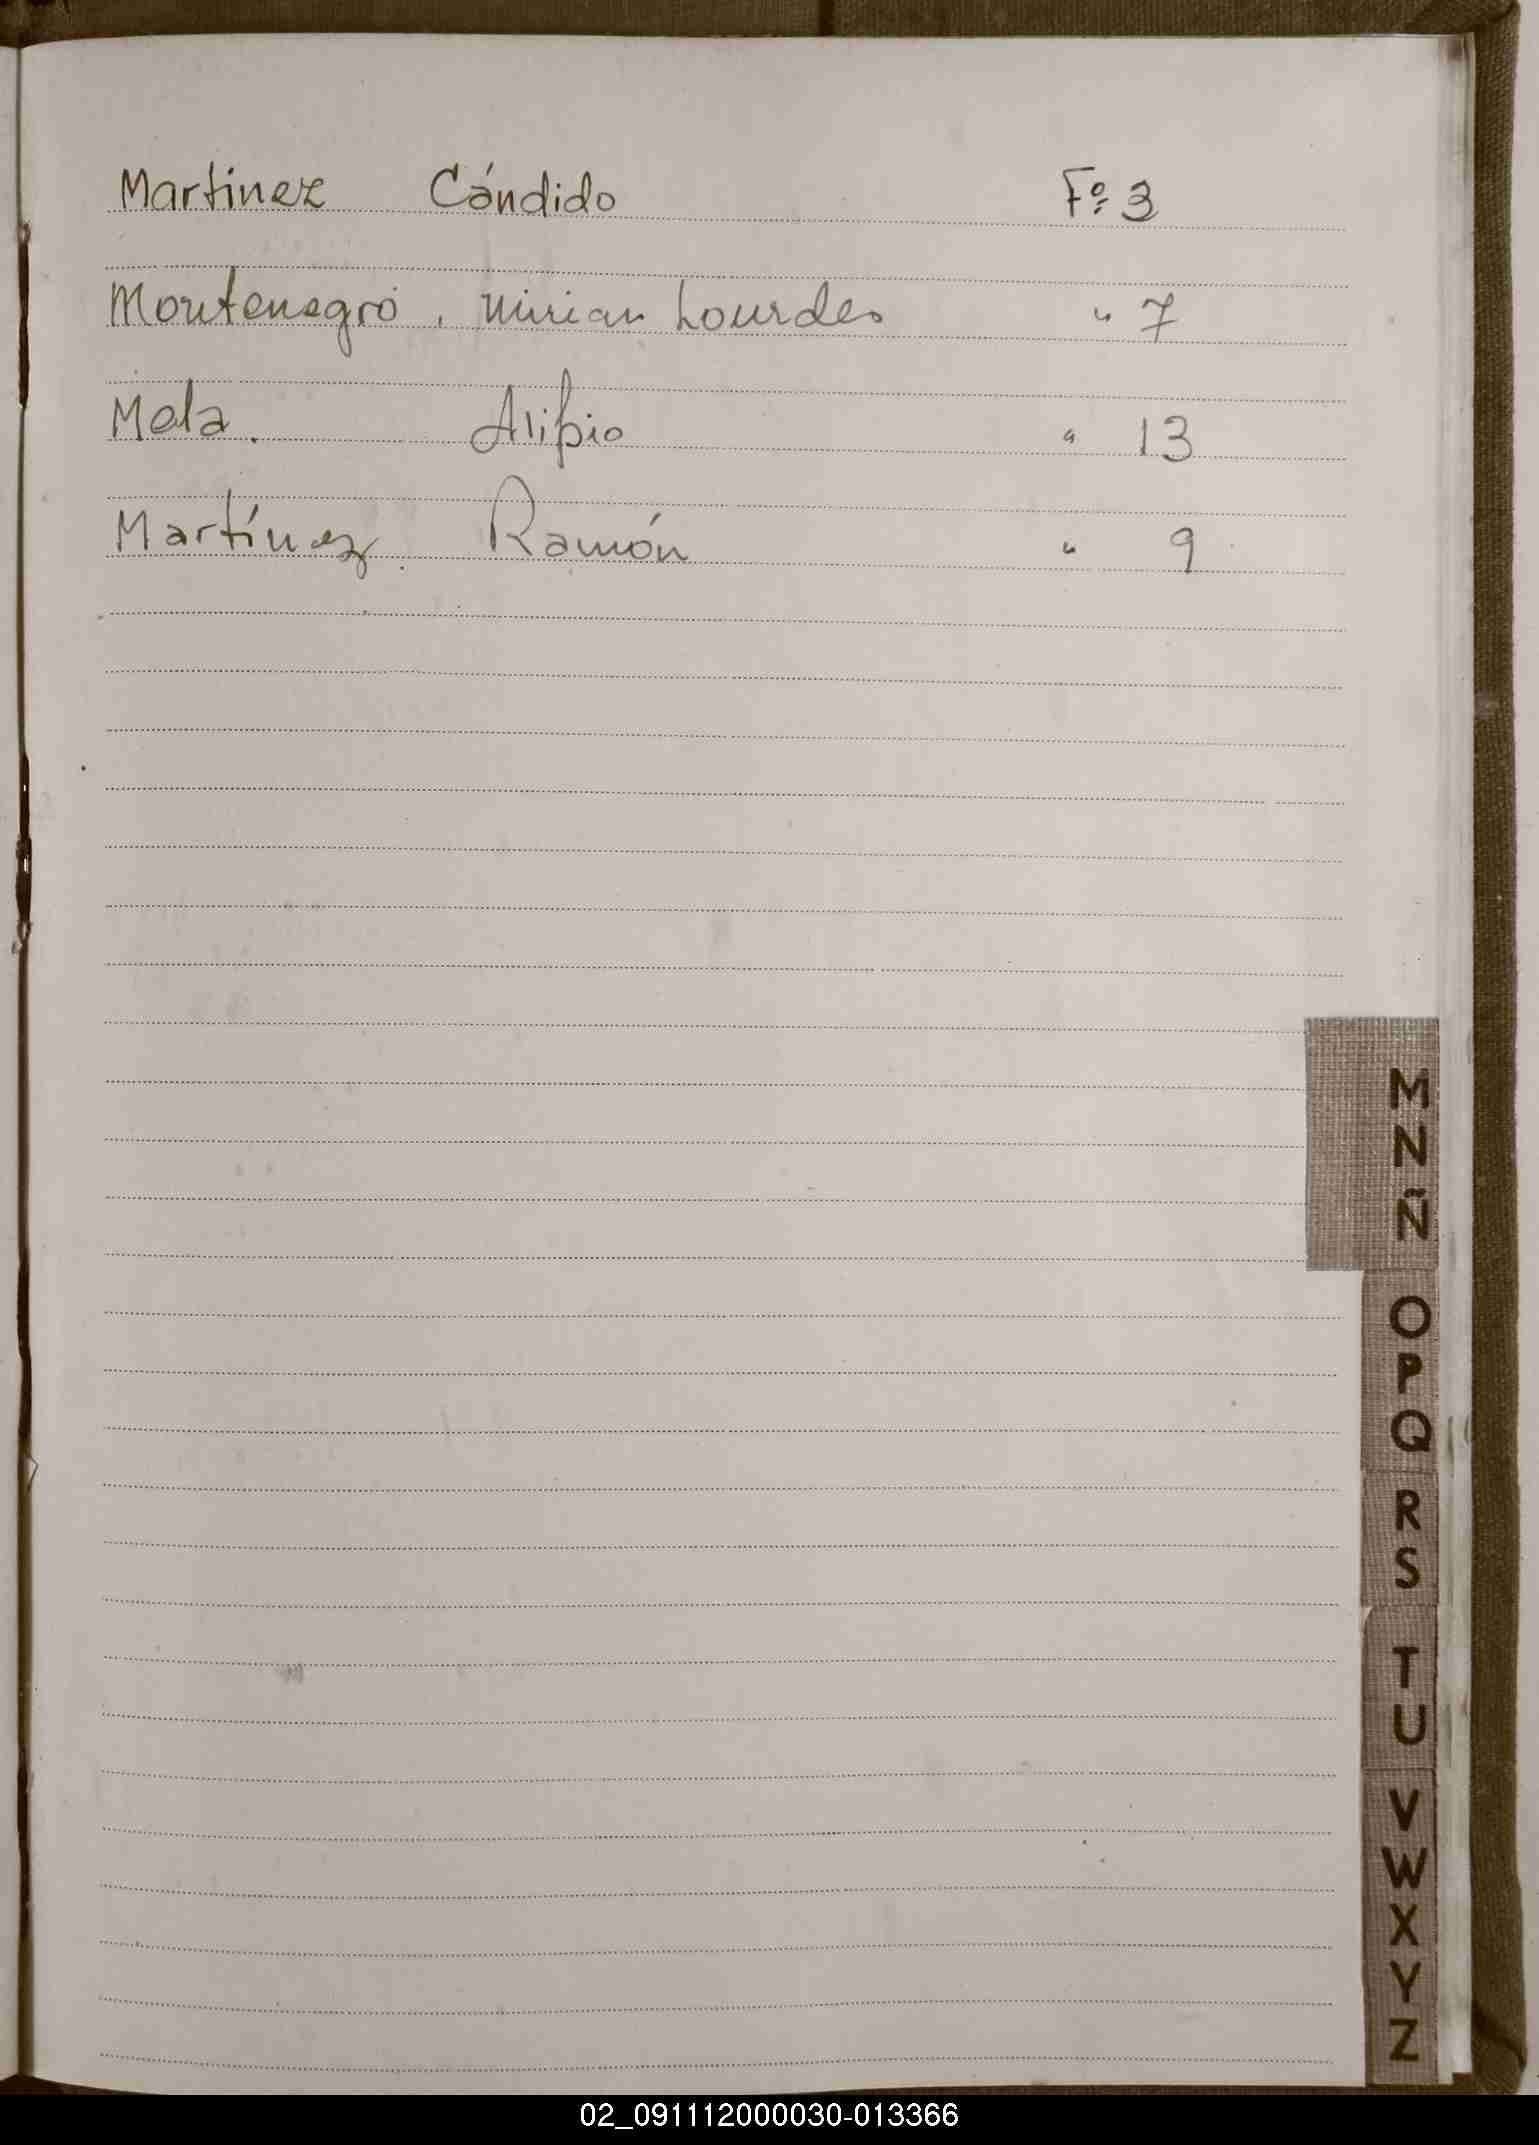 Martinez Cándido Fº 3
Montenegro, Mirian Lourdes " 7
Mela. Alipio " 13
Martínez. Ramón " 9
M
N
Ñ
O
P
Q
R
S
T
U
V
W
X
Y
Z
02_091112000030-013366